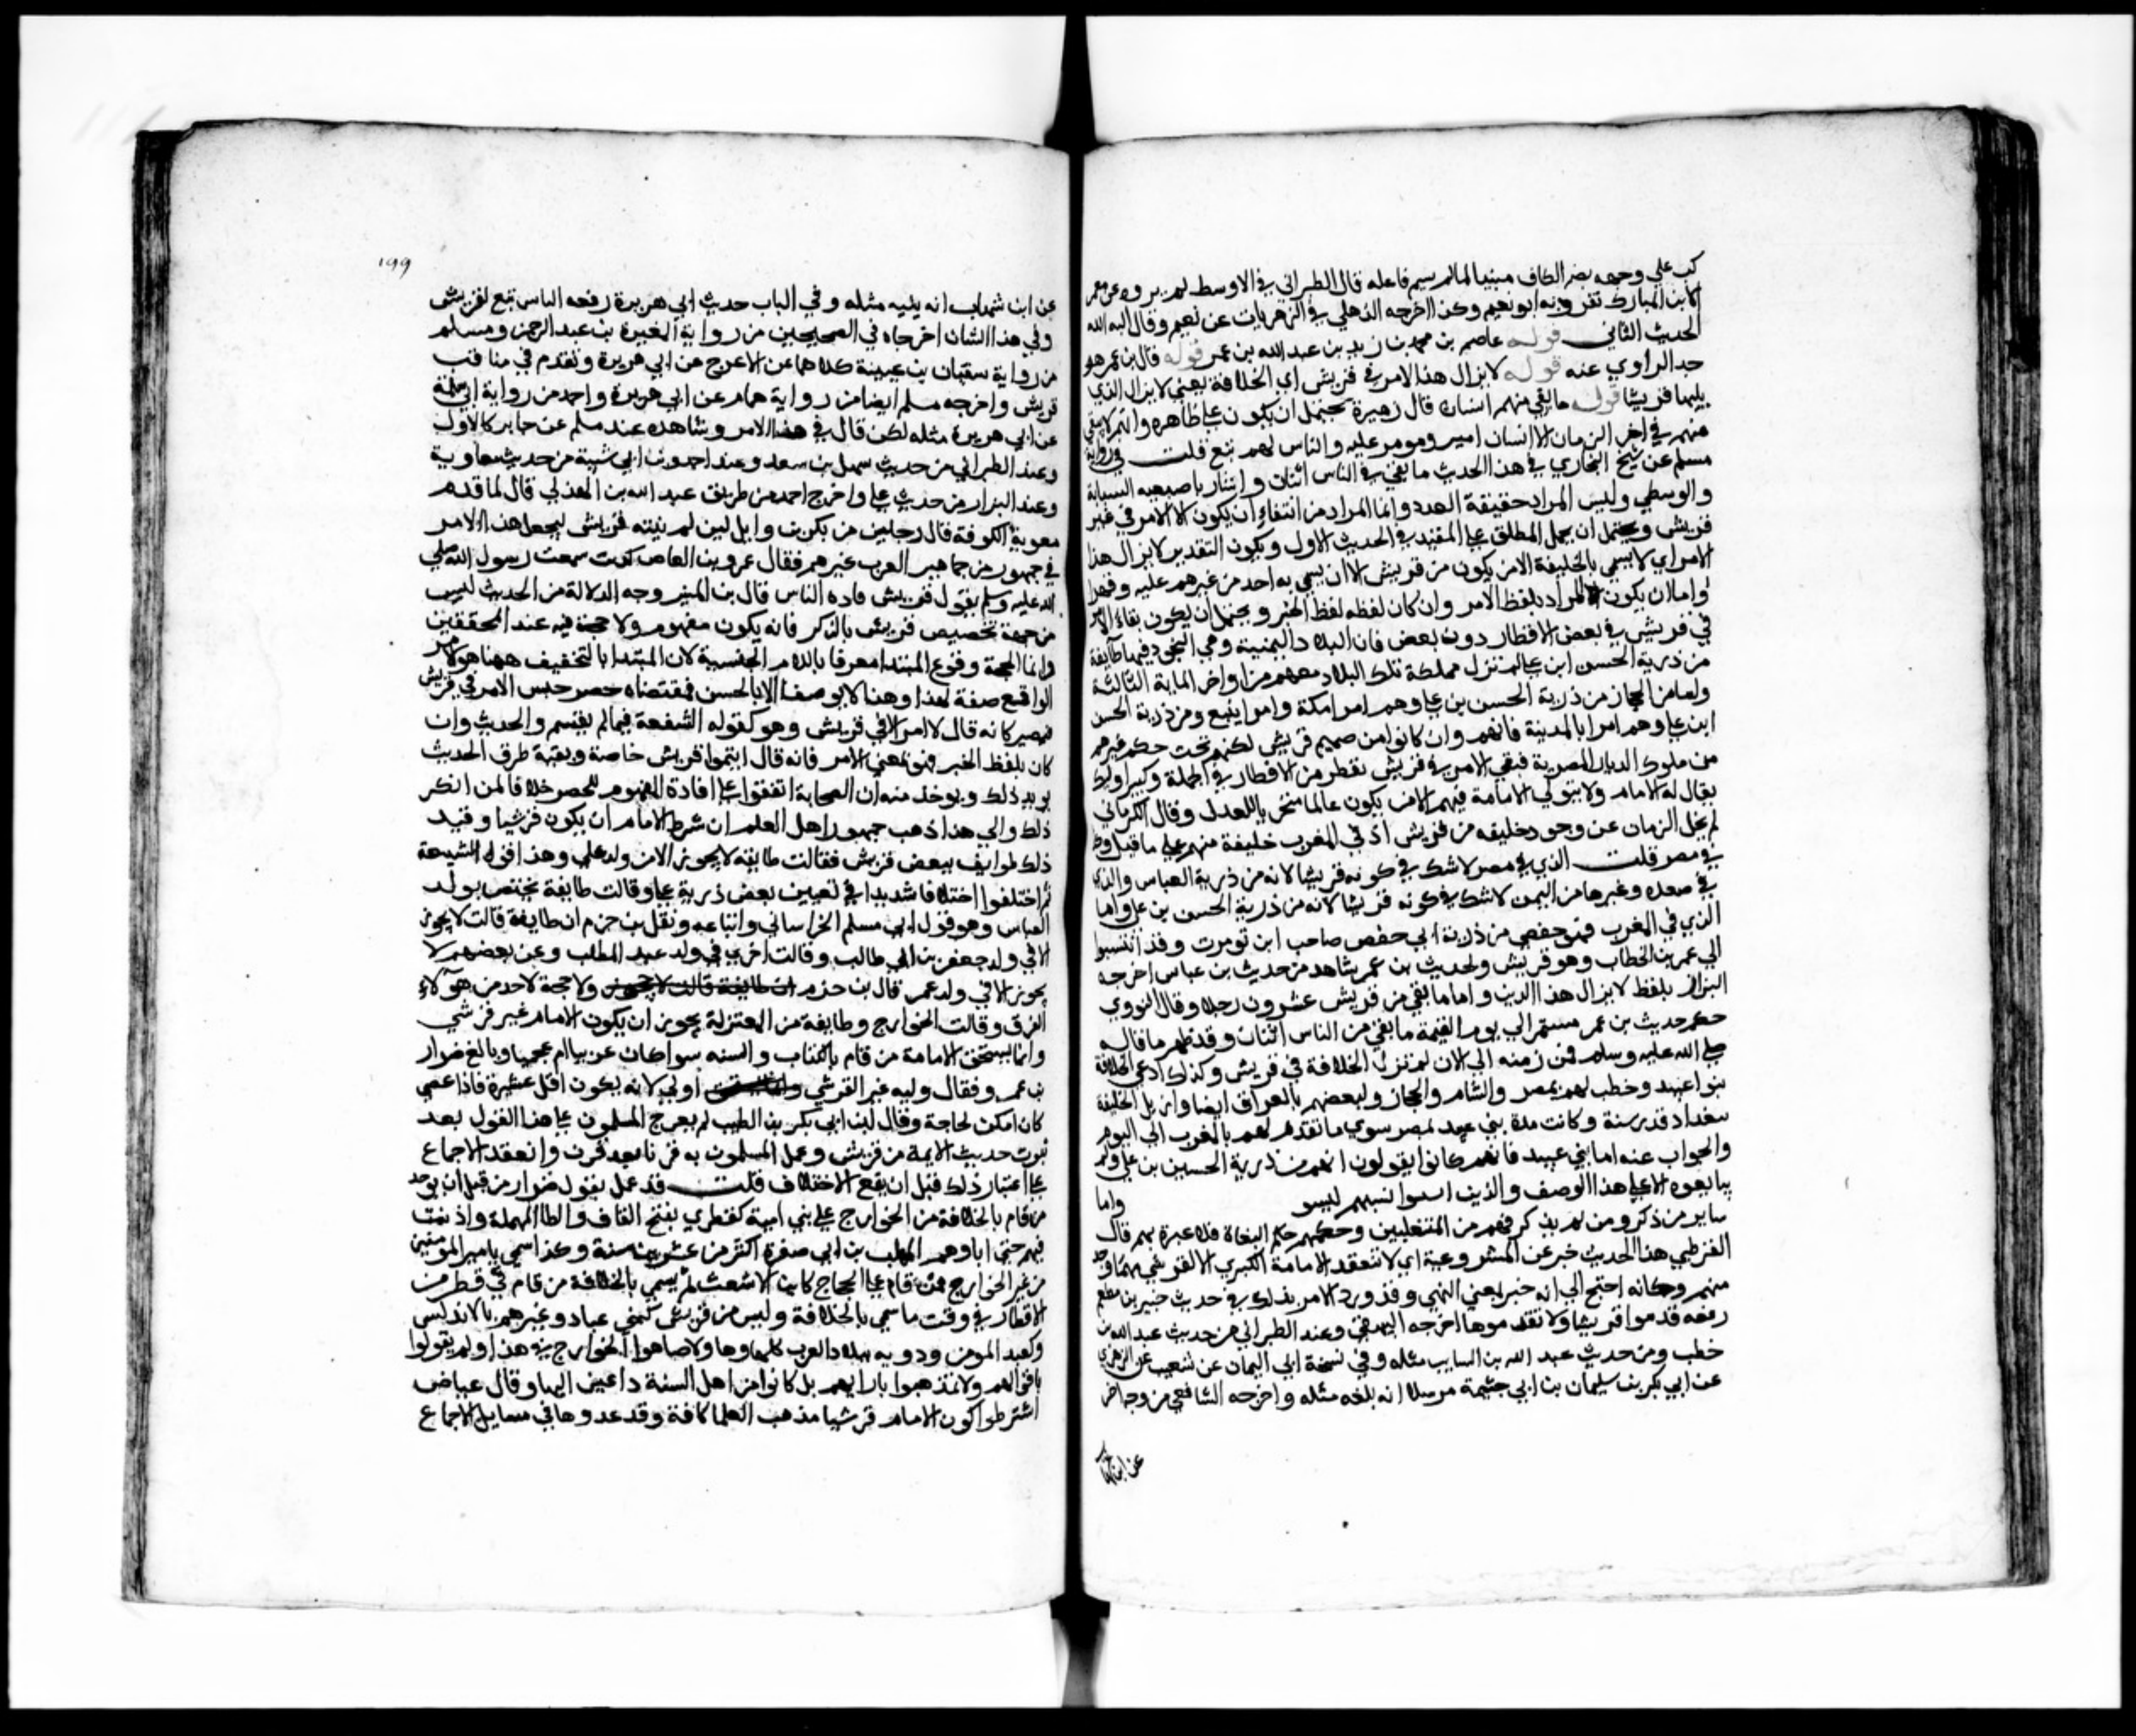 كب علي وجهه بضم الكاف مبنيا لما لم يسم فاعله قال الطبراني في الاوسط لم يروه عن معمر
الا ابن المبارك تفرد به ابو نعيم وكذا اخرجه الذهلي في الزهريات عن نعيم وقال كبه الله
الحديث الثاني قوله عاصم بن محمد بن زيد بن عبد الله بن عمر قوله قال بن عمر هو
جد الراوي عنه قوله لا يزال هذا الامر في قريش اي الخلافة يعني لا يزال الذي
يليها قرشيا قوله ما بقي منهم اثنان قال بن هبيرة يحتمل ان يكون علي ظاهره وانهم لا يبقي
منهم في اخر الزمان الا اثنان امير ومومر عليه والناس لهم تبع قلت في رواية
مسلم عن شيخ البخاري في هذا الحديث ما بقي في الناس اثنان واشار باصبعيه السبابة
والوسطي وليس المراد حقيقة العدد وانما المراد من انتفاء ان يكون الامر في غير
قريش ويحتمل ان يحمل المطلق علي المقيد في الحديث الاول ويكون التقدير لا يزال هذا
الامر اي لا يسمي بالخليفة الا من يكون من قريش الا ان يسمي به احد من غيرهم عليه وقهرا
واما ان يكون المراد بلفظ الامر وان كان لفظه لفظ الخبر ويحتمل ان يكون بقاء الامر
في قريش في بعض الاقطار دون بعض فان البلاد اليمنية وهي النجود فيها طايفة
من ذرية الحسن ابن علي لم تزل مملكة تلك البلاد معهم من اواخر الماية الثالثة
واما من الحجاز من ذرية الحسن بن علي وهم امرا مكة وامرا ينبع ومن ذرية الحسن
ابن علي وهم امرا بالمدينة فانهم وان كانوا من صميم قريش لكنهم تحت حكم غيرهم
من ملوك الديار المصرية فبقي الامر في قريش بقطر من الاقطار في الجملة وكبير اوليك
يقال له الامام ولا يتولي الامامة فيهم الا من يكون عالما متحريا للعدل وقال الكرماني
لم يخل الزمان عن وجود خليفه من قريش اذ في المغرب خليفة منهم علي ما قيل وكذا
في مصر قلت الذي في مصر لا شك في كونه قرشيا لانه من ذرية العباس والذي
في صعده وغيرها من اليمن لا شك في كونه قرشيا لانه من ذرية الحسن بن علي واما
الذي في المغرب فهو حفصي من ذرية ابي حفص صاحب ابن تومرت وقد انتسبوا
الي عمر بن الخطاب وهو قريش ولحديث بن عمر شاهد من حديث بن عباس اخرجه
البزار بلفظ لا يزال هذا الدين واما ما بقي من قريش عشرون رجلا وقال النووي
حكم حديث بن عمر مستمر الي يوم القيمة ما بقي من الناس اثنان وقد ظهر ما قاله
صلي الله عليه وسلم فمن زمنه الي الان لم تزل الخلافة في قريش وكذلك ادعي الخلافة
بنو اعبيد وخطب لهم بمصر والشام والحجاز ولبعضهم بالعراق ايضا وازيل الخليفة
ببغداد قدر سنة وكانت مدة بني عبيد بمصر سوي ما تقدم لهم بالمغرب الي اليوم
والجواب عنه اما بني عبيد فانهم كانوا يقولون انهم من ذرية الحسين بن علي ولم
يبايعوه الا علي هذا الوصف والذين نسبهم ليسو واما
ساير من ذكر ومن لم يذكر فهم من المتغلبين وحكمهم حكم البغاة فلا عبرة بهم قال
القرطبي هذا الحديث خبر عن المشروعية اي لا تنعقد الامامة الكبري الا لقرشي مهما وجد
منهم وكانه احتج الي انه خبر بمعني النهي وقد ورد الامر بذلك في حديث جبير بن مطعم
رفعه قدموا قريشا ولا تقدموها اخرجه البيهقي وعند الطبراني من حديث عبد الله بن
خطب ومن حديث عبد الله بن السايب مثله وفي نسخة ابي اليمان عن شعيب عن الزهري
عن ابي بكر بن سليمان بن ابي حثمة مرسلا انه بلغه مثله واخرجه الشافعي من وجه اخر
عن ابن شهاب
199
عن ابن شهاب انه بلغه مثله وفي الباب حديث ابي هريرة رفعه الناس تبع لقريش
في هذا الشان اخرجاه في الصحيحين من رواية المغيرة بن عبد الرحمن ومسلم
من رواية سفيان بن عيينة كلاهما عن الاعرج عن ابي هريرة وتقدم في مناقب
قريش واخرجه مسلم ايضا من رواية همام عن ابي هريرة واحمد من رواية ابي سلمة
عن ابي هريرة مثله لكن قال في هذا الامر وشاهده عند مسلم عن جابر كالاول
وعند الطبراني من حديث سهل بن سعد وعند احمد وبن ابي شيبة من حديث معاوية
وعند البزار من حديث علي واخرج احمد من طريق عبد الله بن الهذلي قال لما قدم
معوية الكوفة قال رجل من بكر بن وايل لين لم تنته قريش ليجعل هذا الامر
في جمهور من جماهير العرب غيرهم فقال عمرو بن العاص كذبت سمعت رسول الله صلي
الله عليه وسلم يقول قريش قادة الناس قال بن المنير وجه الدلالة من الحديث ليس
من جهة تخصيص قريش بالذكر فانه يكون مفهوم ولا حجة فيه عند المحققين
وانما الحجة وقوع المبتدا معرفا باللام الجنسية لان المبتدا بالتخفيف ههنا هو الامر
الواقع صفة لهذا وهنا لا يوصف الا بالجنس فمقتضاه حصر جنس الامر في قريش
فيصير كانه قال لا امر الا في قريش وهو كقوله الشفعة فيما لم يقسم والحديث وان
كان بلفظ الخبر فهو بمعني الامر فانه قال ايتموا قريش خاصة وبقية طرق الحديث
يويد ذلك ويوخذ منه ان الصحابة اتفقوا علي افادة المفهوم للحصر خلافا لمن انكر
ذلك والي هذا ذهب جمهور اهل العلم ان شرط الامام ان يكون قرشيا وقيد
ذلك طوايف ببعض قريش فقالت طايفه لا يجوز الا من ولد علي وهذا قول الشيعة
ثم اختلفوا اختلافا شديدا في تعيين بعض ذرية علي وقالت طايفة يختص بولد
العباس وهو قول ابي مسلم الخراساني واتباعه ونقل بن حزم ان طايفة قالت لا يجوز
الا في ولد جعفر بن ابي طالب وقالت اخري في ولد عبد المطلب وعن بعضهم لا
يجوز الا في ولد عمر قال بن حزم ان طايفة قالت لا يجوز ولا حجة لاحد من هولاء
الفرق وقالت الخوارج وطايفة من المعتزلة يجوز ان يكون الامام غير قرشي
وانما يستحق الامامة من قام بالكتاب والسنه سوا كان عربيا ام عجميا وبالغ ضرار
بن عمرو فقال وليه غير القرشي اولي لانه يكون اقل عشيرة فاذا عصي
كان امكن لحاجة وقال لبن ابي بكر بن الطيب لم يعرج المسلمون علي هذا القول بعد
ثبوت حديث الايمة من قريش وعمل المسلمون به قرنا بعد قرن وانعقد الاجماع
علي اعتبار ذلك قبل ان يقع الاختلاف قلت قد عمل بقول ضرار من قبل ان يوجد
من قام بالخلافة من الخوارج علي بني امية كقطري بفتح القاف والطا المهملة واذ بقيت
فتنتهم حتي ابادهم المهلب بن ابي صفرة اكثر من عشرين سنة وكذا سمي بامير المومنين
من غير الخوارج ممن قام علي الحجاج كابن الاشعث ثم يسمي بالخلافة من قام في قطر من
الاقطار في وقت ما سمي بالخلافة وليس من قريش كبني عباد وغيرهم بالاندلس
وكعبد المومن وذويه ببلاد العرب كلها وهاولا ضاهوا الخوارج في هذا ولم يقولوا
باقوالهم ولا تمذهبوا بارايهم بل كانوا من اهل السنة داعين اليها وقال عياض
اشترطوا كون الامام قرشيا مذهب العلما كافة وقد عدوها في مسايل الاجماع